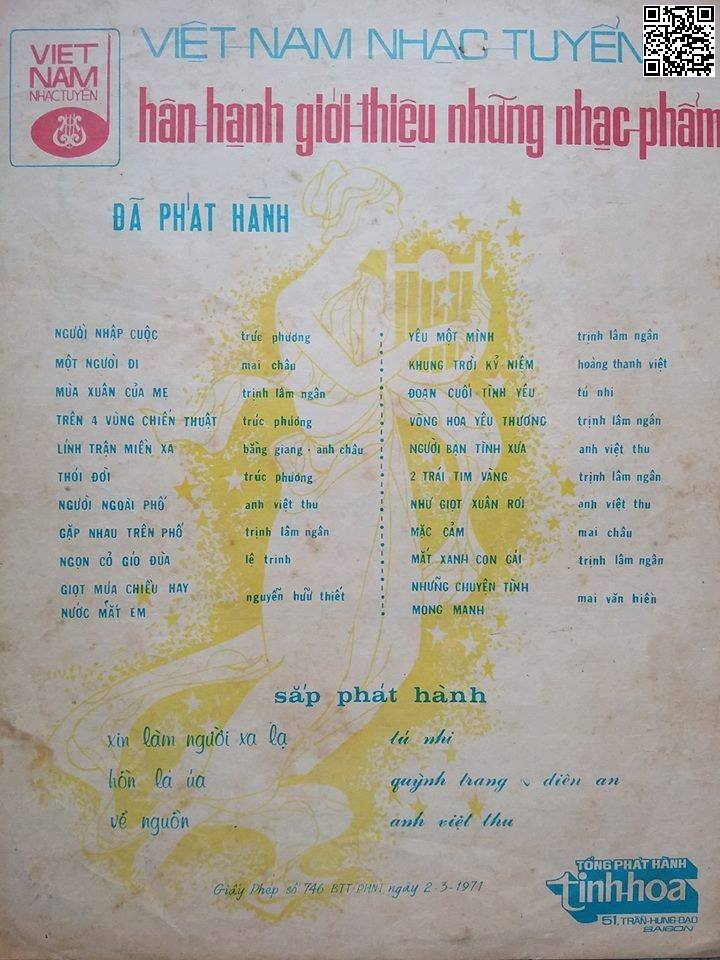 VIỆT NAM NHẠC TUYỂN
VIET
NAM
NHẠC TUYỂN
hân hạnh giới thiệu những nhạc phẩm
ĐÃ PHÁT HÀNH
NGƯỜI NHẬP CUỘC trúc phương
MỘT NGƯỜI ĐI mai châu
MÙA XUÂN CỦA MẸ trịnh lâm ngân
TRÊN 4 VÙNG CHIẾN THUẬT trúc phương
LÍNH TRẬN MIỀN XA bằng giang - anh châu
THÓI ĐỜI trúc phương
NGƯỜI NGOÀI PHỐ anh việt thu
GẶP NHAU TRÊN PHỐ trịnh lâm ngân
NGỌN CỎ GIÓ ĐÙA lệ trinh
GIỌT MƯA CHIỀU HAY
NƯỚC MẮT EM nguyễn hữu thiết
YÊU MỘT MÌNH trịnh lâm ngân
KHUNG TRỜI KỶ NIỆM hoàng thanh việt
ĐOẠN CUỐI TÌNH YÊU tú nhi
VÒNG HOA YÊU THƯƠNG trịnh lâm ngân
NGƯỜI BẠN TÌNH XƯA anh việt thu
2 TRÁI TIM VÀNG trịnh lâm ngân
NHƯ GIỌT XUÂN RƠI anh việt thu
MẶC CẢM mai châu
MẮT XANH CON GÁI trịnh lâm ngân
NHỮNG CHUYỆN TÌNH
MONG MANH mai văn hiền
sắp phát hành
xin làm người xa lạ tú nhi
hồn lá úa quỳnh trang ~ diên an
về nguồn anh việt thu
Giấy Phép số 746 BTT/PHNT ngày 2-3-1971
TỔNG PHÁT HÀNH
tinh-hoa
51, TRẦN-HƯNG-ĐẠO
SAIGON